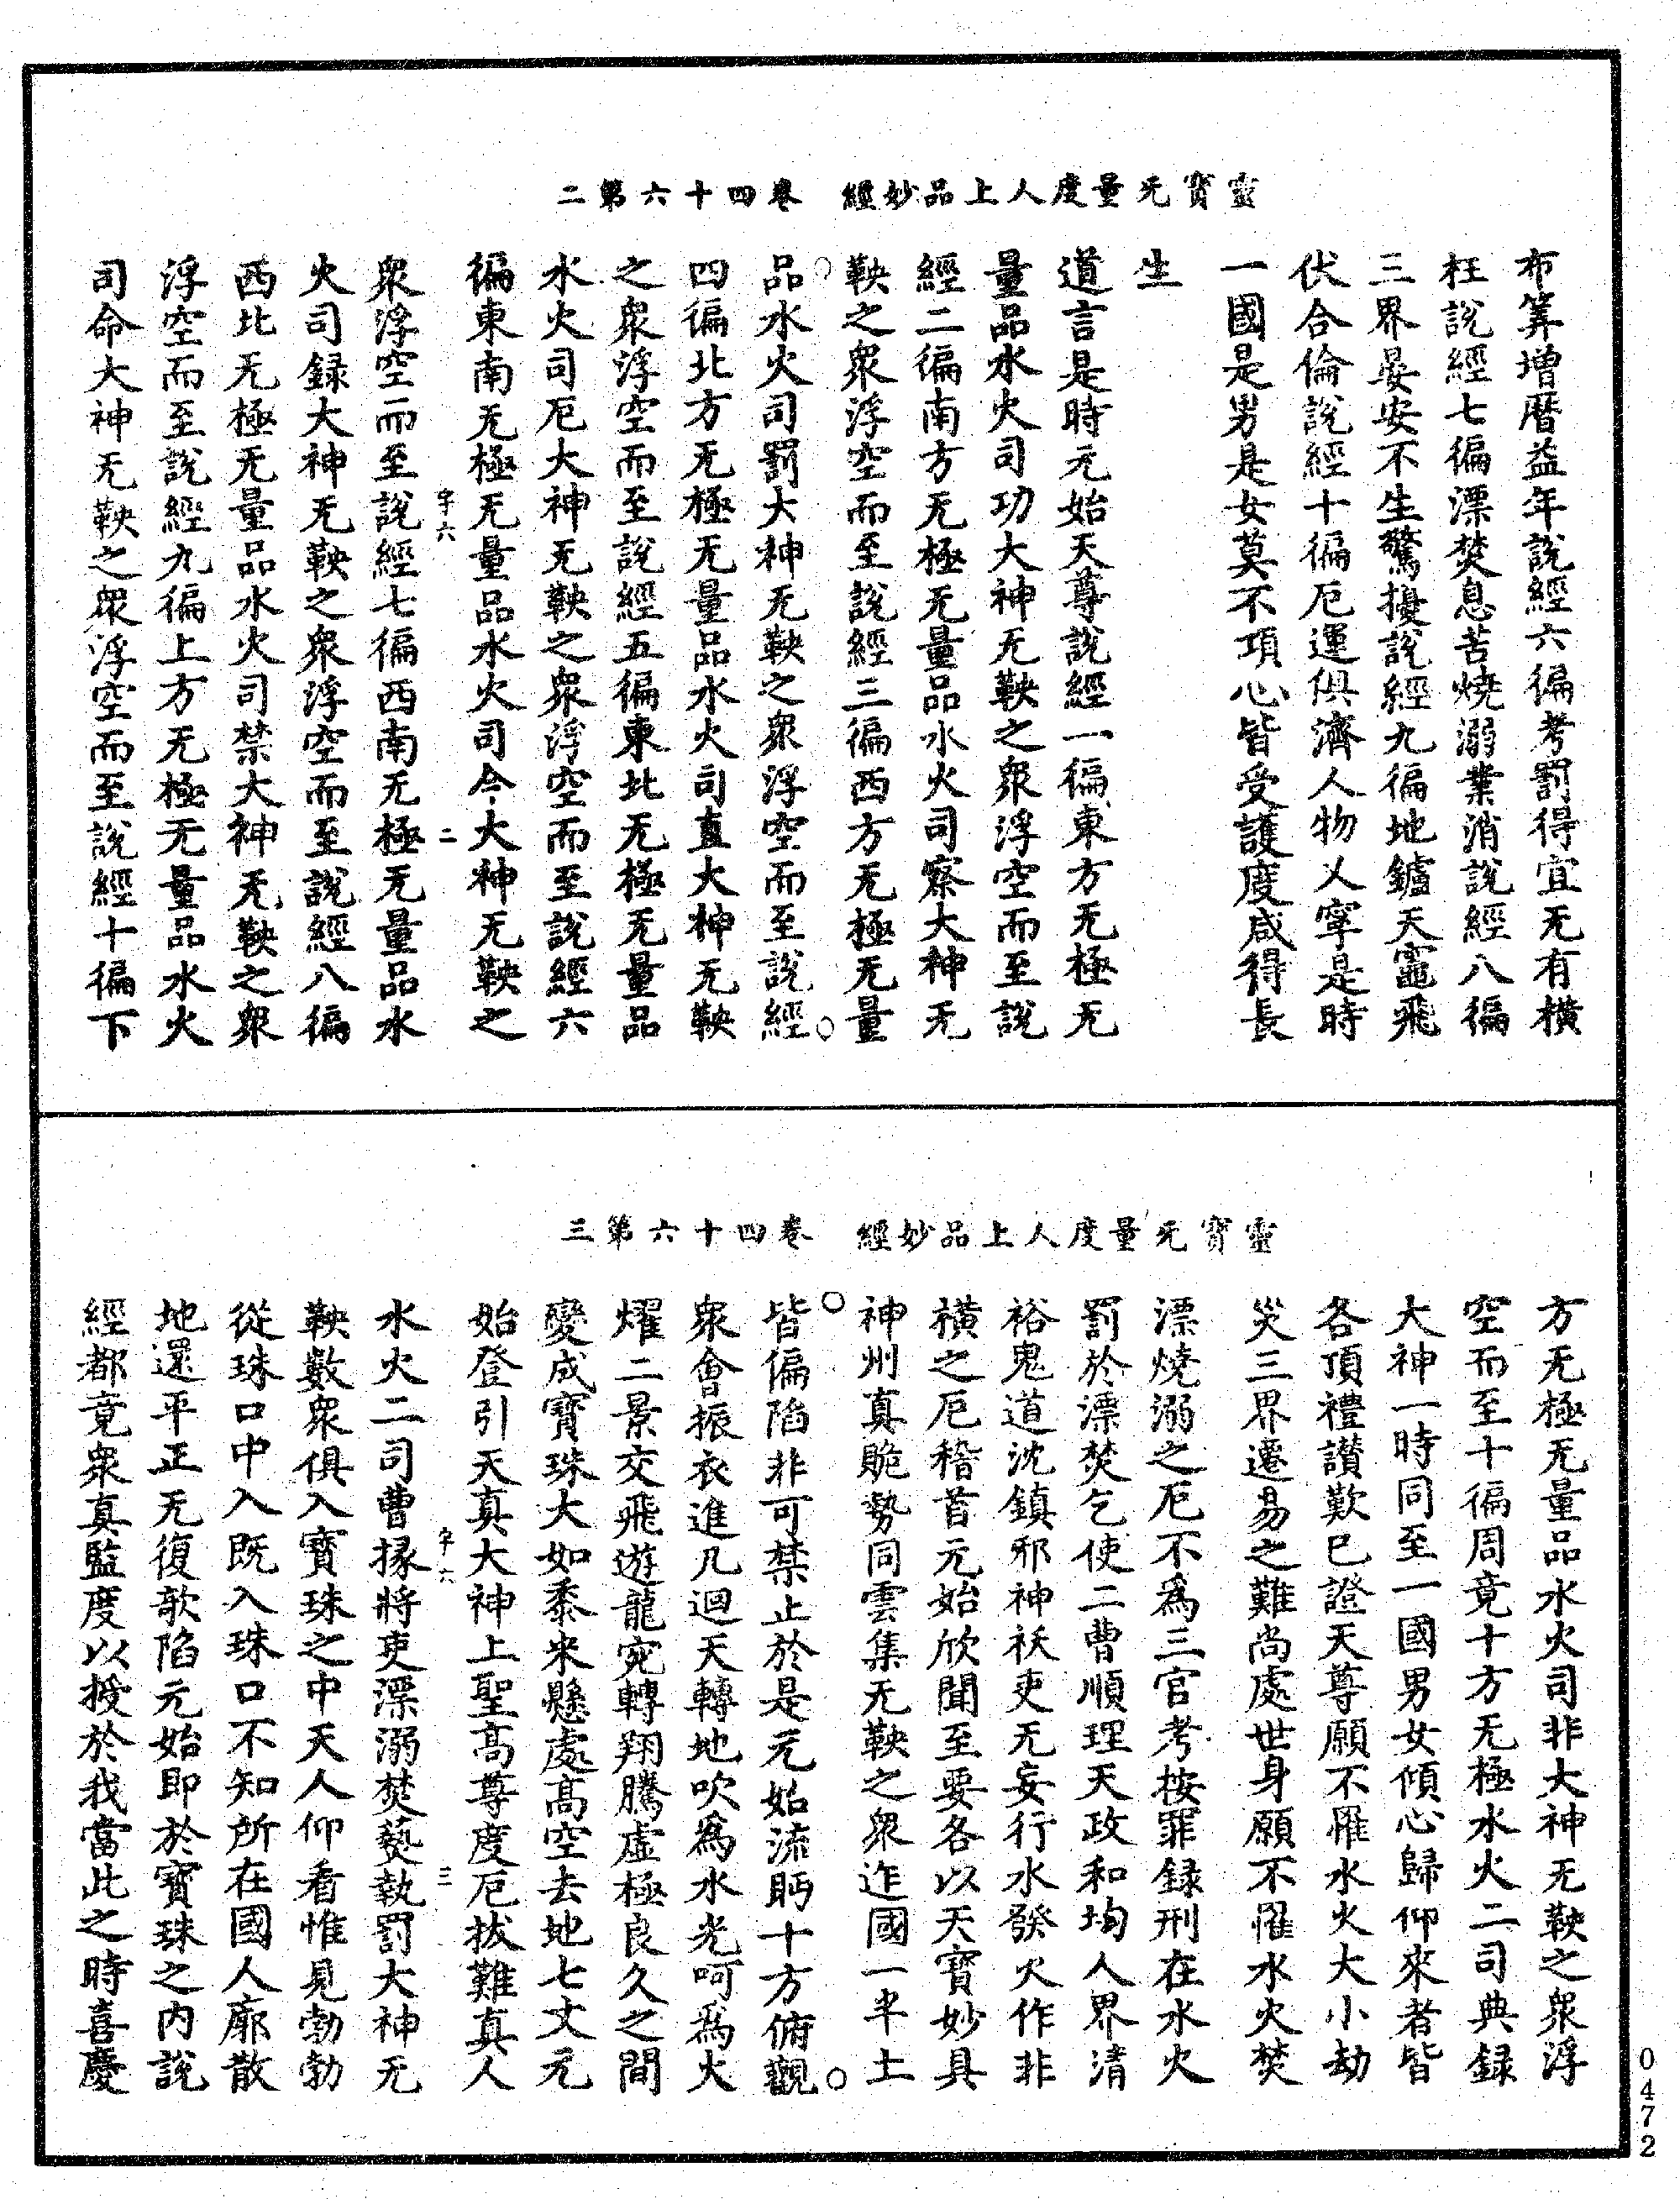 靈寶无量度人上品妙經 卷四十六第二
布筭增曆益年說經六徧考罰得宜无有橫
枉說經七徧漂焚息苦燒溺業消說經八徧
三界晏安不生驚擾說經九徧地鑪天竈飛
伏合倫說經十徧厄運俱濟人物乂寧是時
一國是男是女莫不項心皆受護度咸得長
生
道言是時元始天尊說經一徧東方无極无
量品水火司功大神无鞅之眾浮空而至說
經二徧南方无極无量品水火司察大神无
鞅之眾浮空而至說經三徧西方无極无量
品水火司罰大神无鞅之眾浮空而至說經
四徧北方无極无量品水火司直大神无鞅
之眾浮空而至說經五徧東北无極无量品
水火司厄大神无鞅之眾浮空而至說經六
徧東南无極无量品水火司令大神无鞅之
字六 二
眾浮空而至說經七徧西南无極无量品水
火司録大神无鞅之眾浮空而至說經八徧
西北无極无量品水火司禁大神无鞅之眾
浮空而至說經九徧上方无極无量品水火
司命大神无鞅之眾浮空而至說經十徧下
靈寶无量度人上品妙經 卷四十六第三
方无極无量品水火司非大神无鞅之眾浮
空而至十徧周竟十方无極水火二司典録
大神一時同至一國男女傾心歸仰來者皆
各頂禮讃歎已證天尊願不罹水火大小劫
災三界遷易之難尚處世身願不罹水火焚
漂燒溺之厄不爲三官考按罪録刑在水火
罰於漂焚乞使二曹順理天政和均人界清
裕鬼道沈鎮邪神祅吏无妄行水發火作非
橫之厄稽首元始欣聞至要各以天寶妙具
神州真貤勢同雲集无鞅之眾迮國一半土
皆偏陷非可禁止於是元始流眄十方俯觀
眾會振衣進几迴天轉地吹爲水光呵爲火
燿二景交飛遊龍宛轉翔騰虛極良久之間
變成寶珠大如黍米懸處高空去地七丈元
始登引天真大神上聖高尊度厄拔難真人
字六 三
水火二司曹掾將吏漂溺焚爇執罰大神无
鞅數眾俱入寶珠之中天人仰看惟見勃勃
從珠口中入既入珠口不知所在國人廓散
地還平正无復欹陷元始即於寶珠之內說
經都竟眾真監度以授於我當此之時喜慶
0472